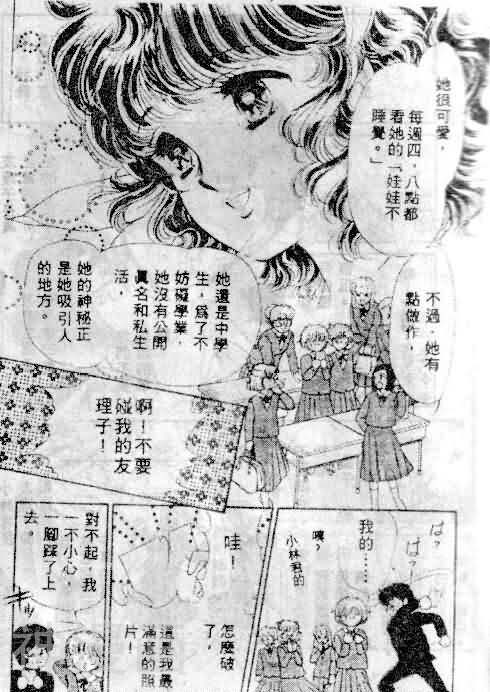 她很可愛，
每週四，八點都
看她的「娃娃不
睡覺。」
不過，她有
點做作，
她還是中學
生，爲了不
妨礙學業，
她沒有公開
眞名和私生
活，
她的神秘正
是她吸引人
的地方。
啊！不要
碰我的友
理子！
ぱ？
ぱ？
我的……
小林君的
怎麼破
了，
哇！
這是我最
滿意的照
片！
對不起，我
一不小心，
一腳踩了上
去。